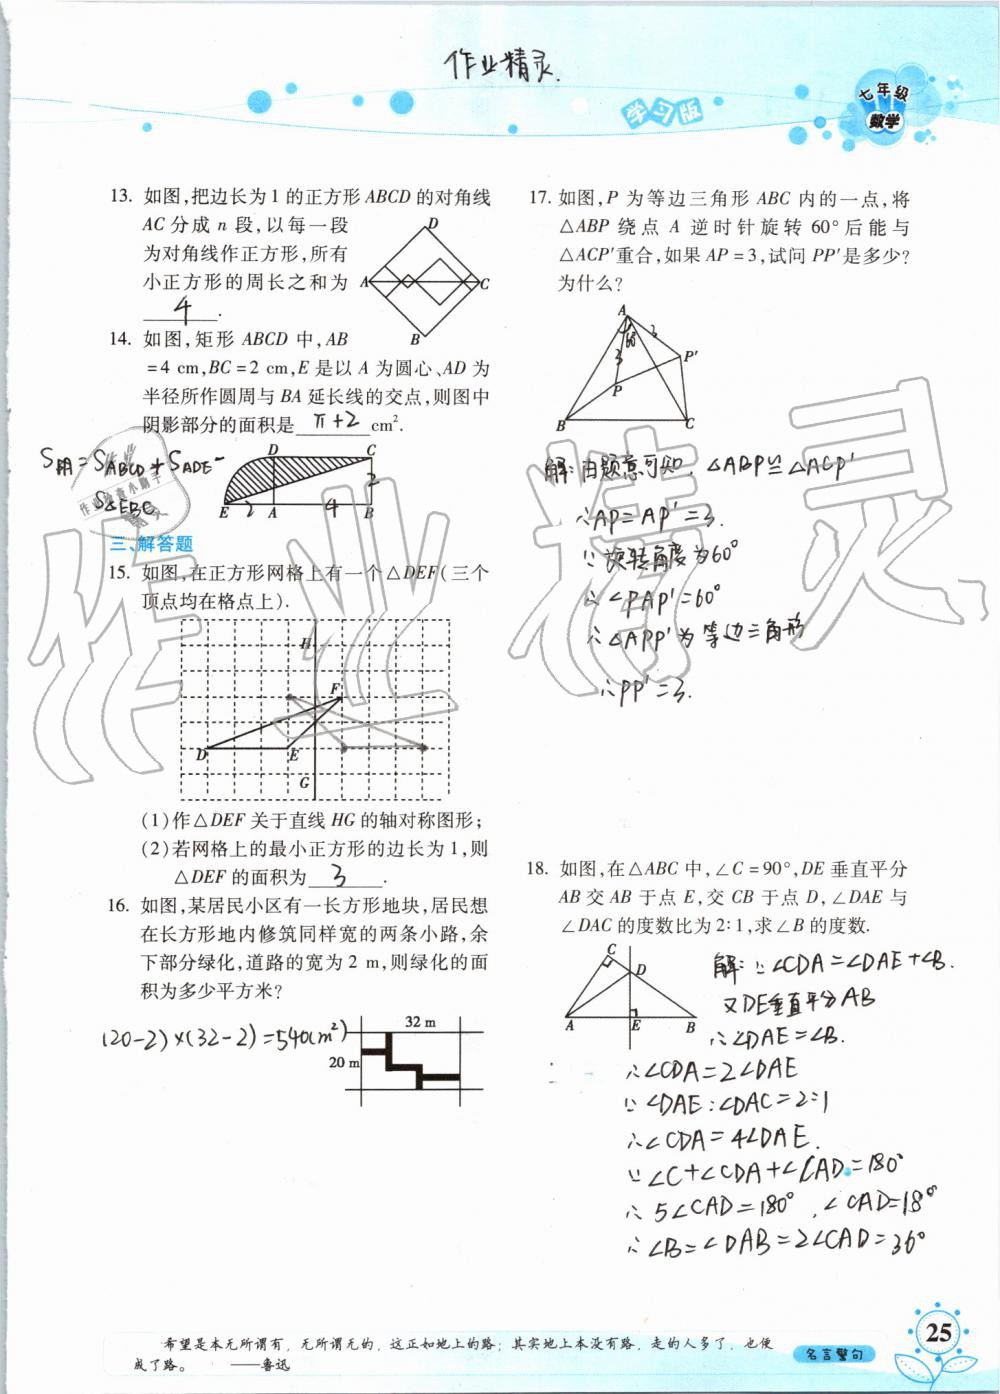 作业精灵.
学习版
七年级
数学
13. 如图,把边长为1的正方形ABCD的对角线
AC分成n段,以每一段
为对角线作正方形,所有
小正方形的周长之和为
4.
A
B
C
D
14. 如图,矩形ABCD中,AB
=4 cm,BC=2 cm,E是以A为圆心、AD为
半径所作圆周与BA延长线的交点,则图中
阴影部分的面积是 π+2 cm².
S阴=SABCD+SADE-
S△EBC
D
C
2
E
2
A
4
B
三、解答题
15. 如图,在正方形网格上有一个△DEF(三个
顶点均在格点上).
H
F
D
E
G
(1)作△DEF关于直线HG的轴对称图形;
(2)若网格上的最小正方形的边长为1,则
△DEF的面积为 3 .
16. 如图,某居民小区有一长方形地块,居民想
在长方形地内修筑同样宽的两条小路,余
下部分绿化,道路的宽为2 m,则绿化的面
积为多少平方米?
(20-2)×(32-2)=540(m²)
32 m
20 m
17. 如图,P为等边三角形ABC内的一点,将
△ABP绕点A逆时针旋转60°后能与
△ACP′重合,如果AP=3,试问PP′是多少?
为什么?
A
60°
3
P′
P
B
C
解:由题意可知,△ABP≌△ACP′
∴AP=AP′=3.
∵旋转角度为60°
∴∠PAP′=60°
∴△APP′为等边三角形
∴PP′=3.
18. 如图,在△ABC中,∠C=90°,DE垂直平分
AB交AB于点E,交CB于点D,∠DAE与
∠DAC的度数比为2:1,求∠B的度数.
C
D
A
E
B
解:∵∠CDA=∠DAE+∠B.
又DE垂直平分AB
∴∠DAE=∠B.
∴∠CDA=2∠DAE
∵∠DAE:∠DAC=2:1
∴∠CDA=4∠DAE.
∵∠C+∠CDA+∠CAD=180°
∴5∠CAD=180°,∠CAD=18°
∴∠B=∠DAB=2∠CAD=36°
希望是本无所谓有,无所谓无的,这正如地上的路;其实地上本没有路,走的人多了,也便
成了路。 ——鲁迅
名言警句
25
作业精灵